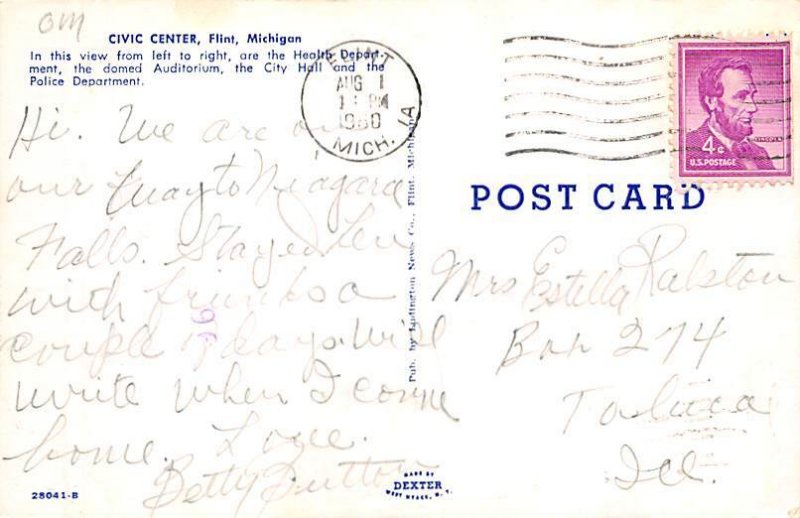 OM
CIVIC CENTER, Flint, Michigan
In this view from left to right, are the Health Depart-
ment, the domed Auditorium, the City Hall and the
Police Department.
FLINT
AUG 1
PM
1960
MICH. 1A
4¢
LINCOLN
U.S. POSTAGE
POST CARD
Hi. We are on
our way to Niagara
Falls. Stayed here
with friends a
couple of days. Will
write when I come
home. Love.
Betty Dutton
Mrs Estella Ralston
Box 274
Toluca
Ill.
Pub. by Ludington News Co., Flint, Michigan
28041-B
MADE BY
DEXTER
WEST NYACK, N. Y.